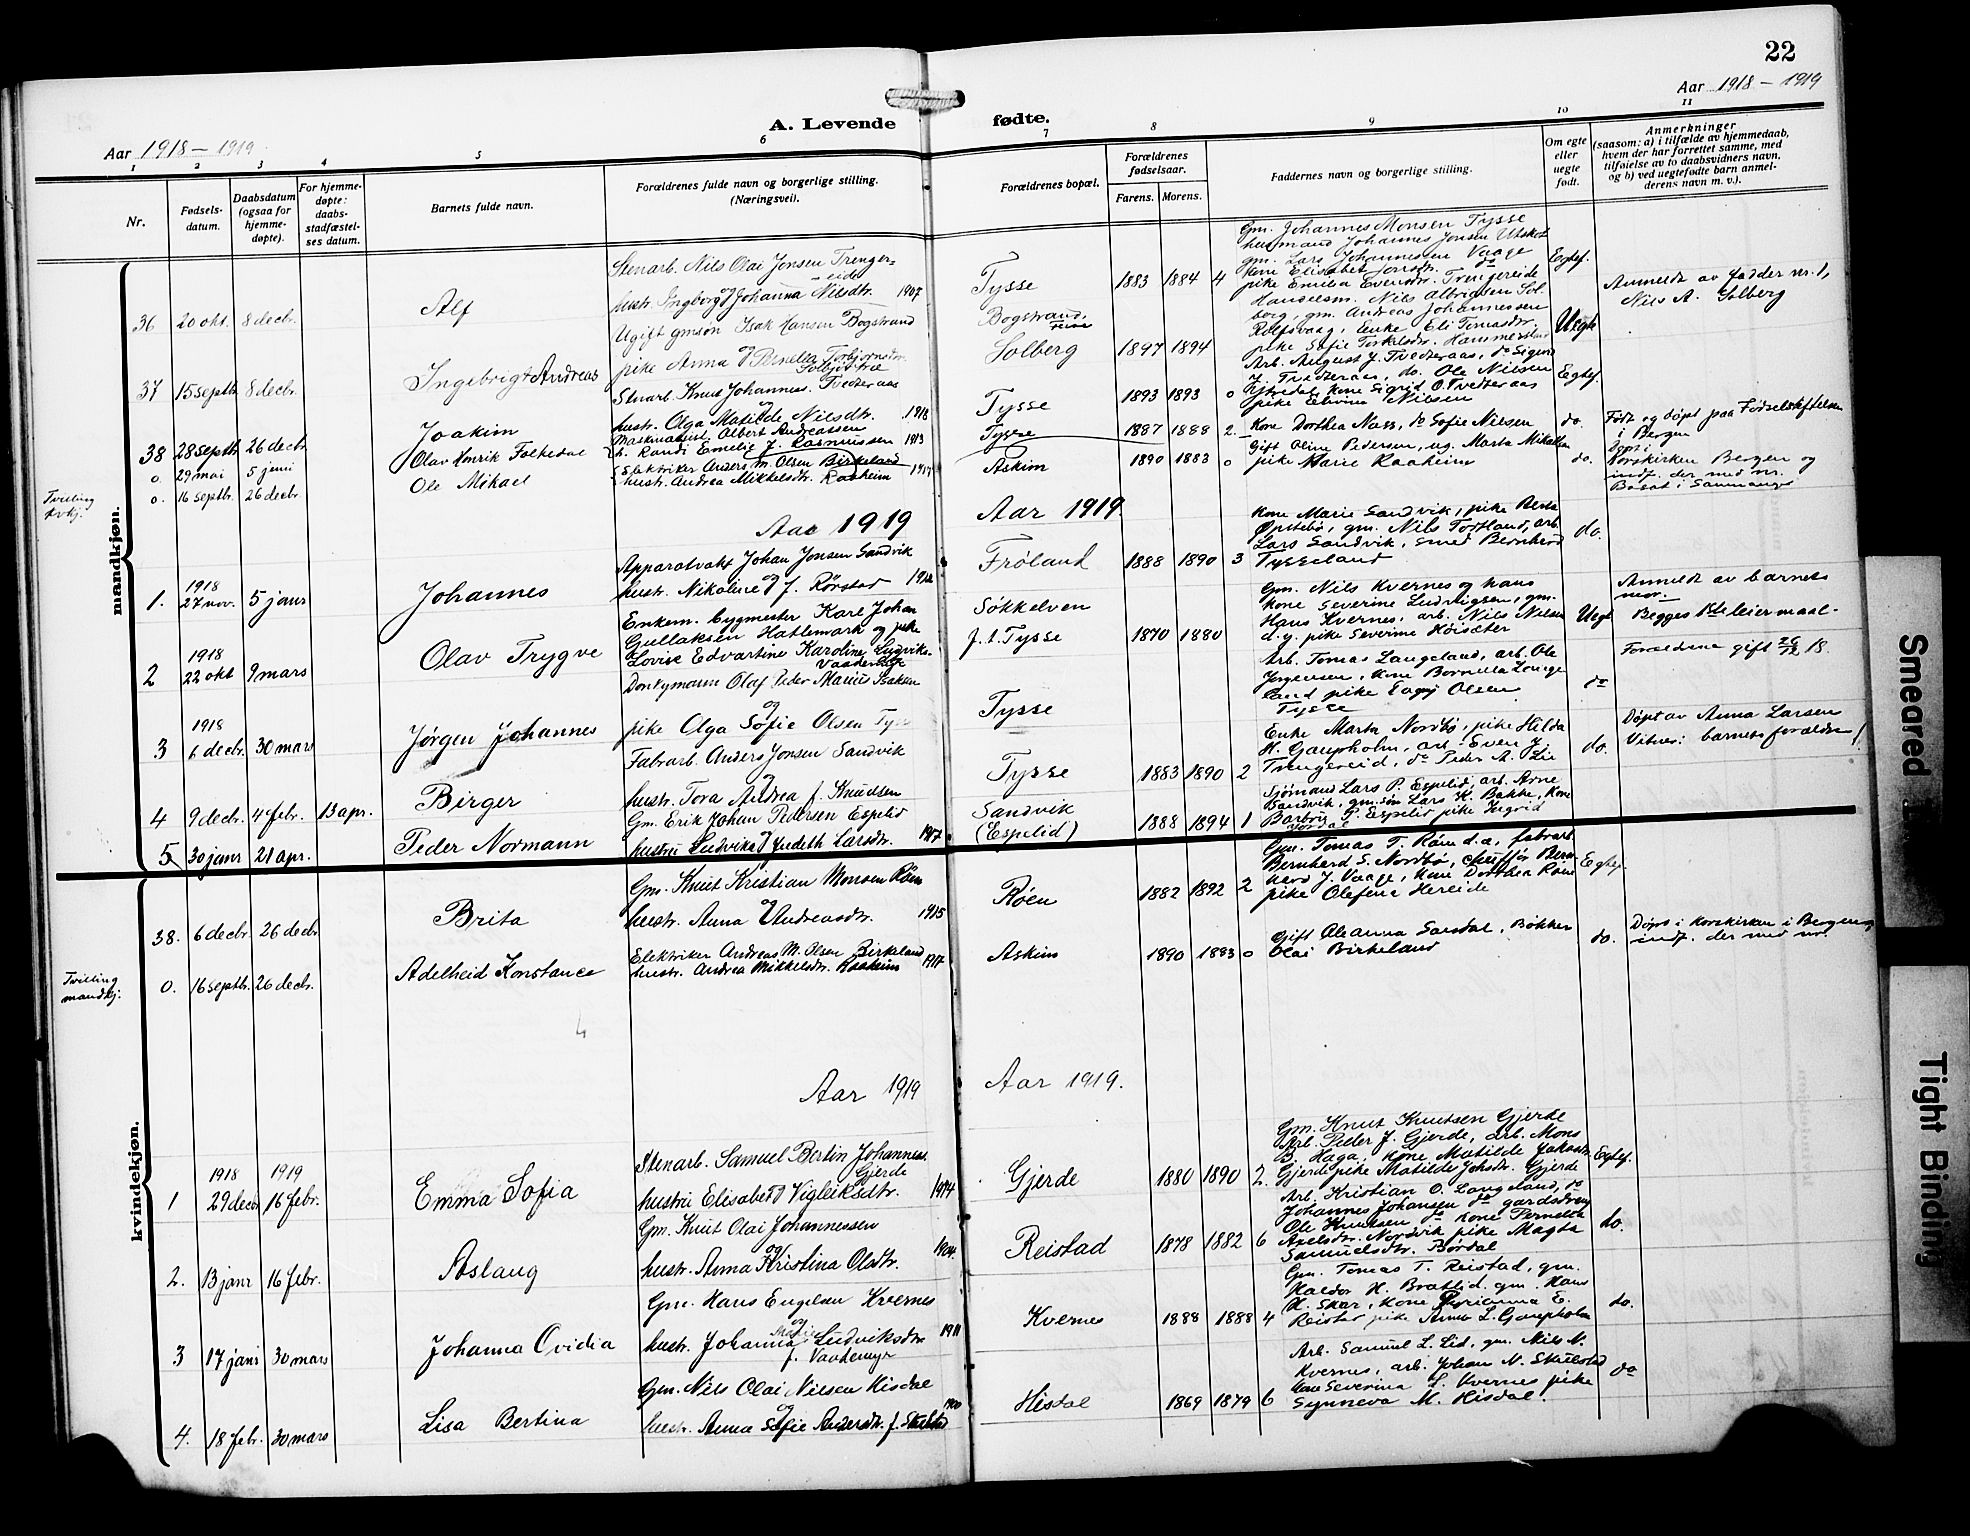 22
Aar 1918 – 1919
A. Levende fødte.
Aar 1918 – 1919
1 2 3 4 5 6 7 8 9 10 11
Nr.
Fødsels-
datum.
Daabsdatum
(ogsaa for
hjemme-
døpte).
For hjemme-
døpte:
daabs-
stadfæstel-
ses datum.
Barnets fulde navn.
Forældrenes fulde navn og borgerlige stilling.
(Næringsvei).
Forældrenes bopæl.
Forældrenes
fødselsaar.
Farens. Morens.
Faddernes navn og borgerlige stilling.
Om egte
eller
uegte
født.
Anmerkninger
(saasom: a) i tilfælde av hjemmedaab,
hvem der har forrettet samme, med
tilføielse av to daabsvidners navn,
og b) ved uegtefødte barn anmel-
derens navn m. v.).
mandkjøn.
36 20 okt. 8 decbr. Alf
Stenarb. Nils Olai Jonsen Trenger-
eide
hustr. Ingborg Johanna Nilsdtr. 1907
Tysse 1883 1884 4
Gm. Johannes Monsen Tysse
husmand Johannes Jonsen
gm. Lars Johannesen Vaage
kone Elisabet Jonsdtr. do
pike Emilia Evensdtr. Trengereide
Egtef.
37 15 septbr. 8 decbr. Ingebrigt Andreas
Ugift gmsøn Isak Hansen Bogstrand
og
pike Anna Pernelia Torbjørnsdtr.
Bogstrand,
Solberg 1897 1894
Handelsm. Nils Albrigtsen Sol-
berg, gm. Andreas Johannessen
Rolfsvaag, Enke Eli Tomasdtr.
pike Sofie Torkelsdtr.
Uegte
Anmeldt av fadder nr. 1,
Nils A. Solberg
38 28 septbr. 26 decbr. Joakim
Stenarb. Knut Johannes. Tvedteraas
og
hustr. Olga Matilde Nilsdtr. 1918
Tysse 1893 1893 0
Arb. August J. Tvedteraas, do Sigurd
J. Tvedteraas, do. Ole Nilsen
kone Sigrid O. Tvedteraas
pike Elvina Nilsen
Egtef.
0. 29 mai 5 juni Olav Henrik Folkedal
Maskinarb. Albert Andreassen
h. Randi Emelie f. Rasmussen 1913
Tysse 1887 1888 2
Kone Dorthea Næss, do Sofie Nilsen
do.
Født og døpt paa Fødselstiftelsen
i Bergen
Tvilling
kvkj.
0. 16 septbr. 26 decbr. Ole Mikael
Elektriker Anders M. Olsen Birkeland
hustr. Andrea Mikkelsdtr. Raaheim 1917
Askim 1890 1883 0
Gift Oline Pedersen, ug. Marta Mikalsen
pike Marie Raaheim
do.
Døpt i
Korskirken Bergen og
indf. der med nr.
Aar 1919 Aar 1919.
1. 1918
27 nov. 5 janr. Johannes
Apparatvakt Johan Jonsen Sandvik
og
hustr. Nikoline f. Rørstad
Frøland 1888 1890 3
Kone Marie Sandvik, pike Berta
Opstebø, gm. Nils Toftland, arb.
Lars Sandvik, smed Bernhard
Tysseland
do.
2 1918
22 okt 9 mars Olav Trygve
Enkem. bygmester Karl Johan
Gullaksen Hatlemark og pike
Lovise Edvartine Karoline Ludviks-
Søkkelven
f. t. Tysse 1870 1880
Gm. Nils Kvernes og hans
kone Severine Ludvigsen, gm.
Hans Kvernes, arb. Nils Nilsen
d.y. pike Severine
Uegt
Anmeldt av barnets
mor.
Begges 1ste leiermaal.
3 1918
6 decbr. 30 mars Jørgen Johannes
Donkymann Olaf Peder Marius Isaksen
og
pike Olga Sofie Olsen Tysse
Tysse
Arb. Tomas Langeland, arb. Ole
Jørgensen, kone Bornilla Lange-
land pike Olsen
Tysse
do
Forældrene gift 26/12 18.
4 9 decbr. 4 febr. 13 apr. Birger
Fabrarb. Anders Jonsen Sandvik
og
hustr. Tora Andrea f. Knudsen
Tysse 1883 1890 2
Enke Marta Nordbø, pike Hilda
H. Gaupholm, arb. Even J.
Trengereid, do Peder A. Lie
do.
Døpt av Anna Larsen
Vitner: barnets forældre!
5 30 janr 21 apr. Peder Normann
Gm. Erik Johan Pedersen Espelid
hustru Ludvika Judith Larsdtr. 1917
Sandvik
(Espelid) 1888 1894 1
Sjømand Lars P. Espelid, arb. Arne
Sandvik, gmsøn Lars K. Bakke, kone
Barbro P. Espelid pike Ingrid
kvindekjøn.
38. 6 decbr. 26 decbr. Brita
Gm. Knut Kristian Monsen Røen
og
hustr. Anna Andreasdtr. 1915
Røen 1882 1892 2
Gm. Tomas T. Røen d.æ, fabrarb.
Bernhard S. Nordbø, chauffør Bern-
hard J. Vaage, kone Dorthea Røen
pike Olefine Hereide
Egtef.
Tvilling
mandkj.
0. 16 septbr. 26 decbr. Adelheid Konstance
Elektriker Andreas M. Olsen Birkeland
hustr. Andrea Mikkelsdtr. Raaheim 1917
Askim 1890 1883 0
Gift Oleanna Sandal, Bøkker
Olai Birkeland
do.
Døpt i Korskirken i Bergen og
indf. der med nr.
4
Aar 1919 Aar 1919.
1 1918 1919
29 decbr 16 febr. Emma Sofia
Stenarb. Samuel Bertin Johannes.
Gjerde
hustru Elisabet Vigleiksdtr. 1914
Gjerde 1880 1890 2.
Gm. Knut Knutsen Gjerde
Arb. Peder J. Gjerde, arb. Mons
B. Haga, kone Matilde Jakobsdtr.
Gjerde pike Matilde Johsdtr. Gjerde
Egtef.
2. 13 janr 16 febr. Aslaug
Gm. Knut Olai Johannessen
og
hustr. Anna Kristina Olsdtr. 1904
Reistad 1878 1882 6
Arb. Kristian O. Langeland, do
Johannes Johansen do gardsdreng
Ole Knutsen do kone Pernella
Axelsdtr. Nordvik pike Magta
Samuelsdtr. Børdal
do.
3 17 janr 30 mars Johanna Ovidia
Gm. Hans Engelsen Kvernes
og
hustr. Johanna Marie Ludviksdtr 1911
f. Vaademyr
Kvernes 1888 1888 4
Gm. Tomas T. Reistad, gm.
Haldor H. Bratlid. gm. Hans
H. Skar, kone E.
Reistad pike Anna L. Gaupholm
do.
4. 18 febr. 30 mars Lisa Bertina
Gm. Nils Olai Nilsen Hisdal
og
hustr. Anna Sofie Andersdtr. f. 1900
Hisdal 1869 1879 6
Arb. Samuel L. Lid, gm. Nils N.
Kvernes, arb. Johan N.
kone Severina L. Kvernes pike
Synneva M. Hisdal.
do
Smeared
Tight Binding